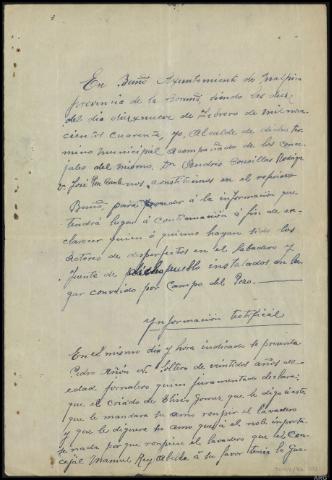 En Buño Ayuntamiento de Malpica
provincia de la Coruña, siendo las diez
del dia diez y nueve de Febrero de mil nove
cientos cuarenta, yo, Alcalde de dicho ter
mino municipal, acompañado de los conce
jales del mismo, Dn
y Jose nos constituimos en el referido
Buño para proceder a la información que
tendrá lugar á continuación á fin de es
clarecer quien ó quienes hayan sido los
actores de desperfectos en el labadero y
fuente de dicho pueblo instalados en lu
gar conocido por Campo del Pozo.
Información testifical
En el mismo dia y hora indicados se presenta
Pedro soltero de veintidos años de
edad, jornalero quien juramentado declara:
que el criado de Eliseo Gomez, que le dijo á este
que le mandara su amo romper el lavadero
y que le dijere su amo que á el no le importa
se nada por que rompiese el lavadero que el Con
cejal Manuel Rey á su favor tenia la Gua